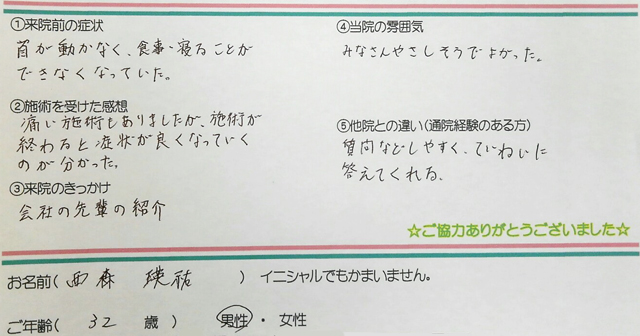 ①来院前の症状
首が動かなく、食事・寝ることが
できなくなっていた。
②施術を受けた感想
痛い施術もありましたが、施術が
終わると症状が良くなっていく
のが分かった。
③来院のきっかけ
会社の先輩の紹介
④当院の雰囲気
みなさんやさしそうでよかった。
⑤他院との違い(通院経験のある方)
質問などしやすく、ていねいに
答えてくれる。
☆ご協力ありがとうございました☆
お名前( 西森 瑛祐 ) イニシャルでもかまいません。
ご年齢( 32 歳 ) 男性 ・ 女性